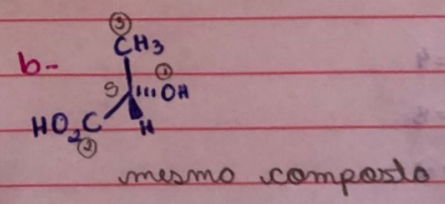 ③
CH₃
b-
①
S OH
HO₂C H
②
mesmo composto